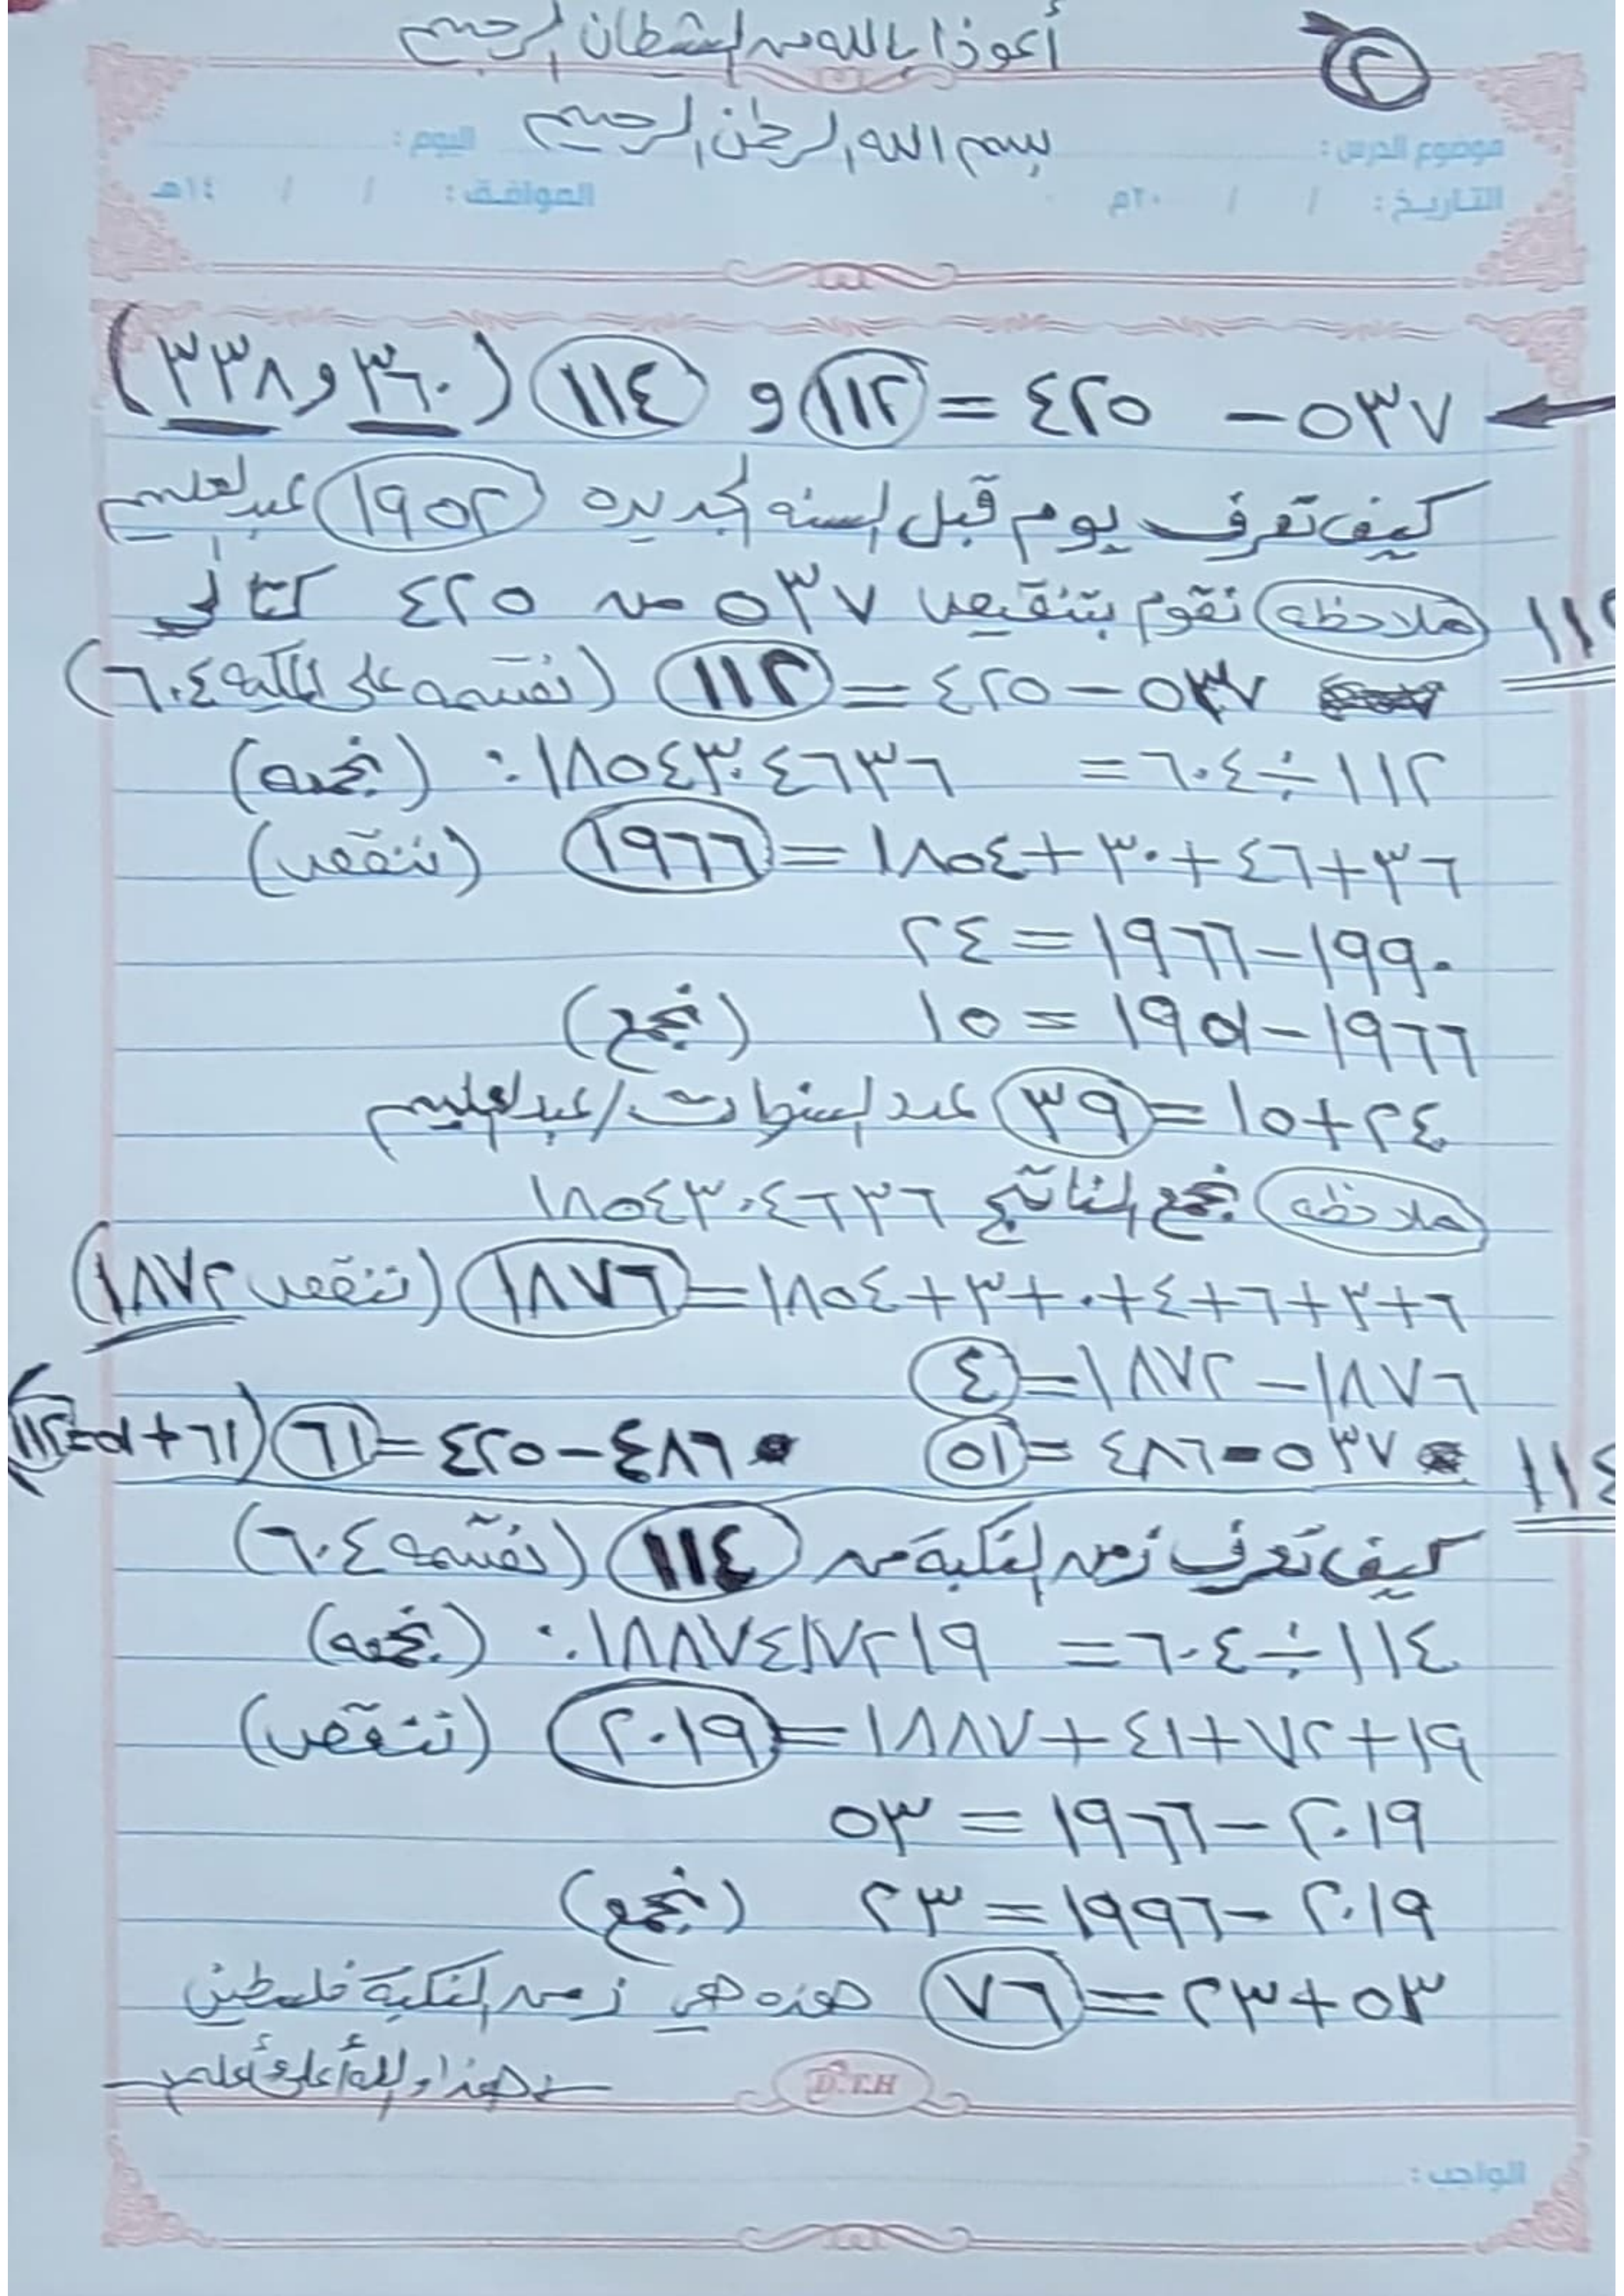 أعوذ بالله من الشيطان الرجيم
٢
بسم الله الرحمن الرحيم
موضوع الدرس :
اليوم :
التاريخ : / / ٢٠م
الموافق : / / ١٤هـ
٥٣٧ - ٤٢٥ = ١١٢ و ١١٤ (٣٦٠ و ٣٣٨)
كيف تعرف يوم قبل السنه الجديده ١٩٥٢ عبدالعليم
١١٢ ملاحظه نقوم بتنقيص ٥٣٧ من ٤٢٥ كتالي
٥٣٧ - ٤٢٥ = ١١٢ (نقسمه على المكيه ٦٠٤)
١١٢ ÷ ٦٠٤ = ٠.١٨٥٤٣٠٤٦٣٦ (نجمعه)
٣٦ + ٤٦ + ٣٠ + ١٨٥٤ = ١٩٦٦ (ننقص)
١٩٩٠ - ١٩٦٦ = ٢٤
١٩٦٦ - ١٩٥١ = ١٥ (نجمع)
٢٤ + ١٥ = ٣٩ عدد السنوات / عبدالعليم
ملاحظه نجمع الناتج ١٨٥٤٣٠٤٦٣٦
٦ + ٣ + ٦ + ٤ + ٠ + ٣ + ١٨٥٤ = ١٨٧٦ (ننقص ١٨٧٢)
١٨٧٦ - ١٨٧٢ = ٤
٥٣٧ - ٤٨٦ = ٥١ • ٤٨٦ - ٤٢٥ = ٦١ (٦١ + ٥١ = ١١٢)
١١٤
كيف تعرف زمن النكبة من ١١٤ (نقسمه ٦٠٤)
١١٤ ÷ ٦٠٤ = ٠.١٨٨٧٤١٧٢١٩ (نجمعه)
١٩ + ٧٢ + ٤١ + ١٨٨٧ = ٢٠١٩ (ننقص)
٢٠١٩ - ١٩٦٦ = ٥٣
٢٠١٩ - ١٩٩٦ = ٢٣ (نجمع)
٥٣ + ٢٣ = ٧٦ هذه هي زمن النكبة فلسطين
هذا والله أعلى وأعلم
D.T.H
الواجب :